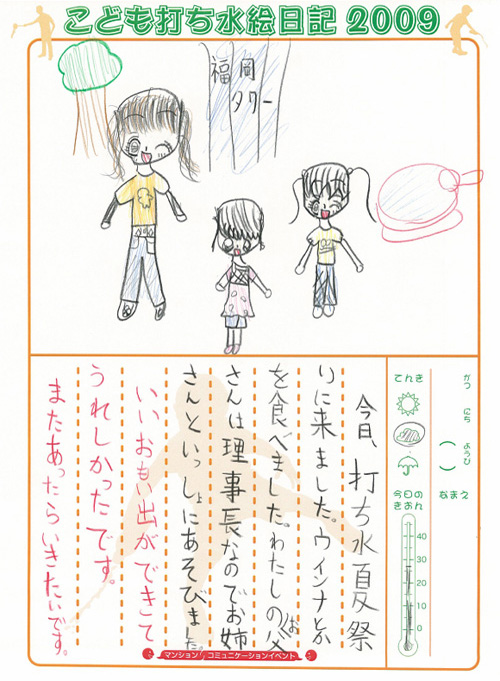 こども打ち水絵日記 2009
福岡
タワー
がつ にち ようび
( )
なまえ
てんき
今日の
きおん
40
30
20
10
0
今日、打ち水夏祭
りに来ました。ウインナとか
を食べました。わたしのお父
さんは理事長なのでお姉
さんといっしょにあそびました。
いいおもい出ができて
うれしかったです。
またあったらいきたいです。
マンションコミュニケーションイベント